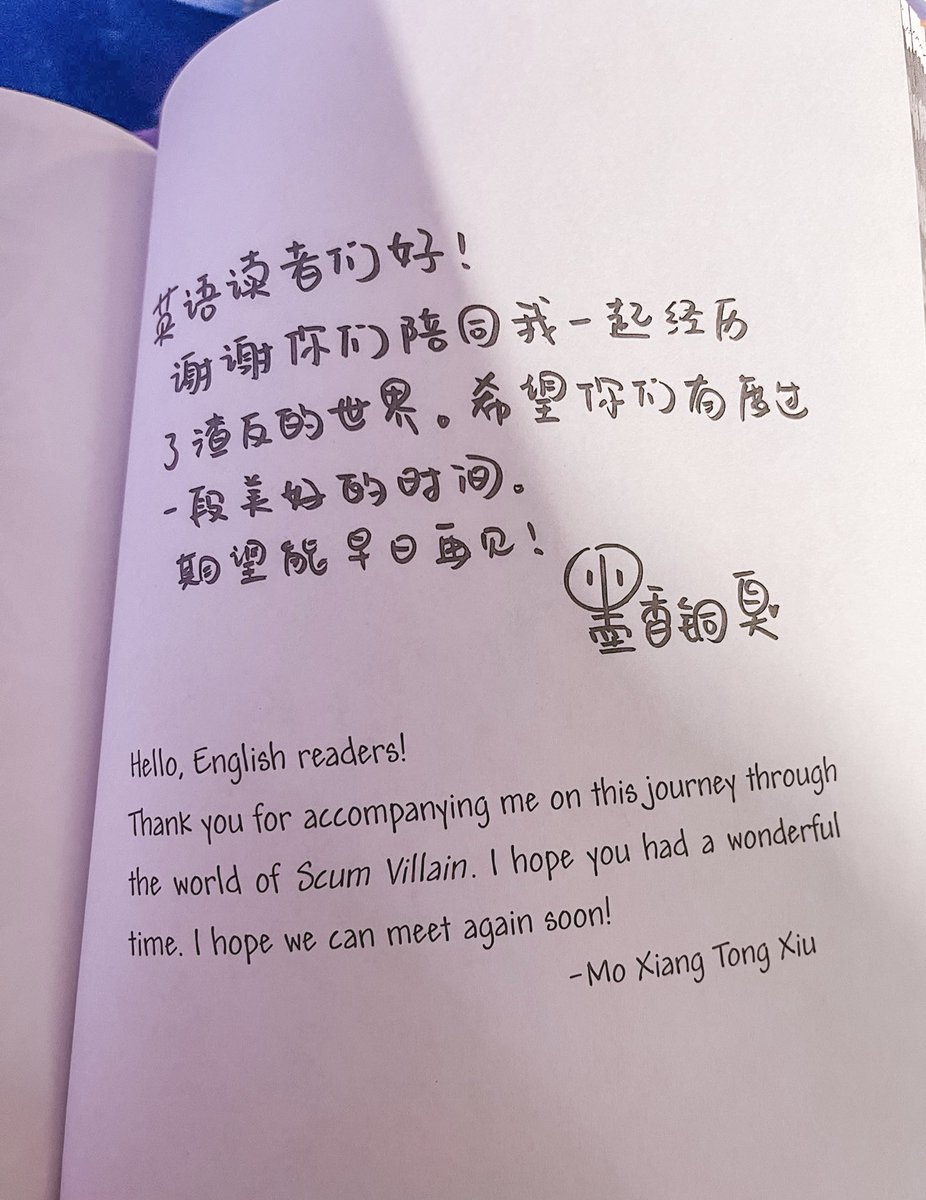 英语读者们好！
谢谢你们陪同我一起经历
了渣反的世界。希望你们有度过
一段美好的时间。
期望能早日再见！
墨香铜臭
Hello, English readers!
Thank you for accompanying me on this journey through
the world of Scum Villain. I hope you had a wonderful
time. I hope we can meet again soon!
-Mo Xiang Tong Xiu